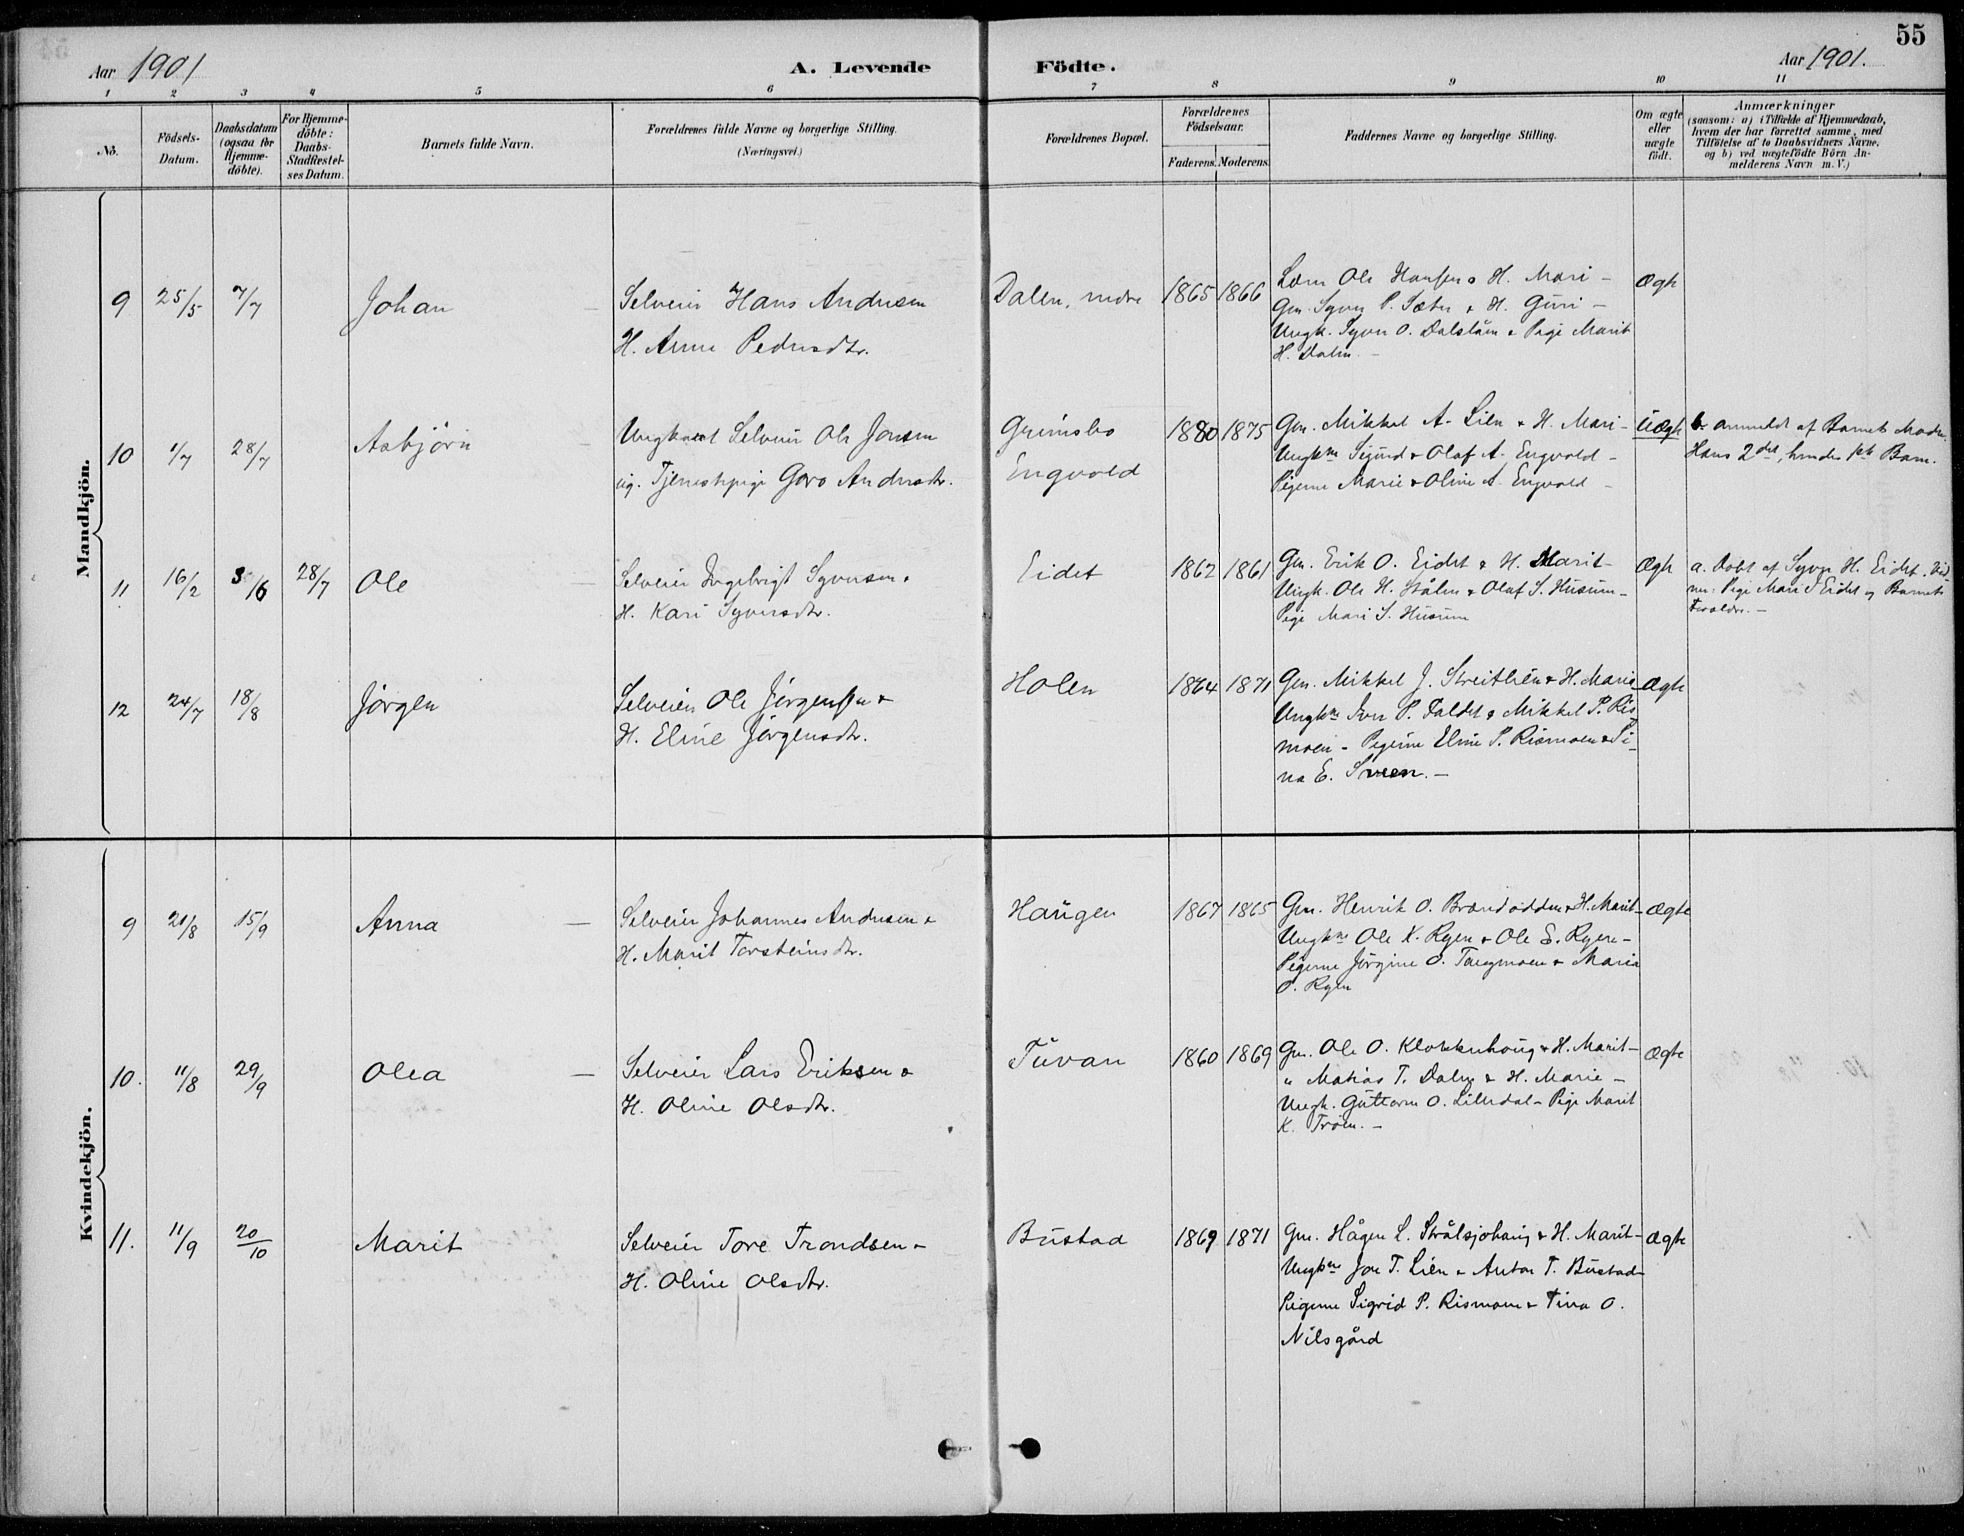 55
Aar 1901
A. Levende Födte.
Aar 1901.
1 2 3 4 5 6 7 8 9 10 11
No.
Födsels-
Datum.
Daabsdatum
(ogsaa for
Hjemme-
döbte).
For Hjemme-
döbte:
Daabs-
Stadfæstel-
ses Datum.
Barnets fulde Navn.
Forældrenes fulde Navne og borgerlige Stilling.
(Næringsvei.)
Forældrenes Bopæl.
Forældrenes
Födselsaar.
Faderens. Moderens.
Faddernes Navne og borgerlige Stilling.
Om ægte
eller
uægte
födt.
Anmærkninger
(saasom: a) i Tilfælde af Hjemmedaab,
hvem der har forrettet samme, med
Tilföielse af to Daabsvidners Navne.
og b) ved uægtefödte Börn An-
melderens Navn m. V.)
Mandkjön.
9 25/5 7/7 Johan
Selveier Hans Andersen
H. Anne Pedersdtr.
Dalen, nedre 1865 1866
Ole Hansen & H. Mari -
Gm. Syver P. Sæter & H. Guri -
Ungk. Syver O. Dalslåen & Pige Marit
H. Dalen. -
Ægte
10 1/7 28/7 Asbjørn
Ungkarl Selveier Ole Jonsen
og Tjenestepige Goro Andersdtr.
Grimsbo
Engvold
1880 1875
Gm. Mikkel A. Lien & H. Mari -
Ungkne Sigurd & Olaf A. Engvold -
Pigerne Marie & Oline A. Engvold -
Uægte
b. anmeldt af Barnets Moder.
Hans 2det, hendes 1ste Barn.
11 16/2 3/6 28/7 Ole
Selveier Ingebrigt Syversen &
H. Kari Syversdtr.
Eidet 1862 1861
Gm. Erik O. Eidet & H. Marit -
Ungk. Ole H. Stålen & Olaf S. Husum -
Pige Mari S. Husum
Ægte
a. Døbt af Syver H. Eidet. Vid-
ner: Pige Mari S Eidet og Barnets
Foraldre. -
12 24/7 18/8 Jørgen
Selveier Ole Jørgensen &
H. Eline Jørgensdtr.
Holen 1864 1871
Gm. Mikkel J. Streitlien & H. Maria -
Ungkne Iver P. Faldet & Mikkel P. Ris-
moen - Pigerne Eline P. Rismoen & Si-
na E. Sveen. -
Ægte
Kvindekjön.
9 21/8 15/9 Anna -
Selveier Johannes Andersen &
H. Marit Torsteinsdtr.
Haugen 1867 1865
Gm. Henrik O. Brændodden & H. Marit -
Ungkne Ole K. Ryen & Ole E. Ryen -
Pigerne Jørgine O. Tangmoen & Maria
O. Ryen
Ægte
10. 11/8 29/9 Olea -
Selveier Lars Eriksen &
H. Oline Olsdtr.
Tuvan 1860 1869
Gm. Ole O. Klokkerhoug & H. Marit -
" Matias T. Dalen & H. Marie -
Ungk. Guttorm O. Lilledal - Pige Marit
K. Trøen. -
Ægte
11. 11/9 20/10 Marit
Selveier Tore Trondsen -
H. Oline Olsdtr.
Bustad 1869 1871
Gm. Hågen L. Strålsjøhaug & H. Marit -
Ungkne Jon T. Lien & Anton T. Bustad -
Pigerne Sigrid P. Rismoen & Tina O.
Nilsgård
Ægte